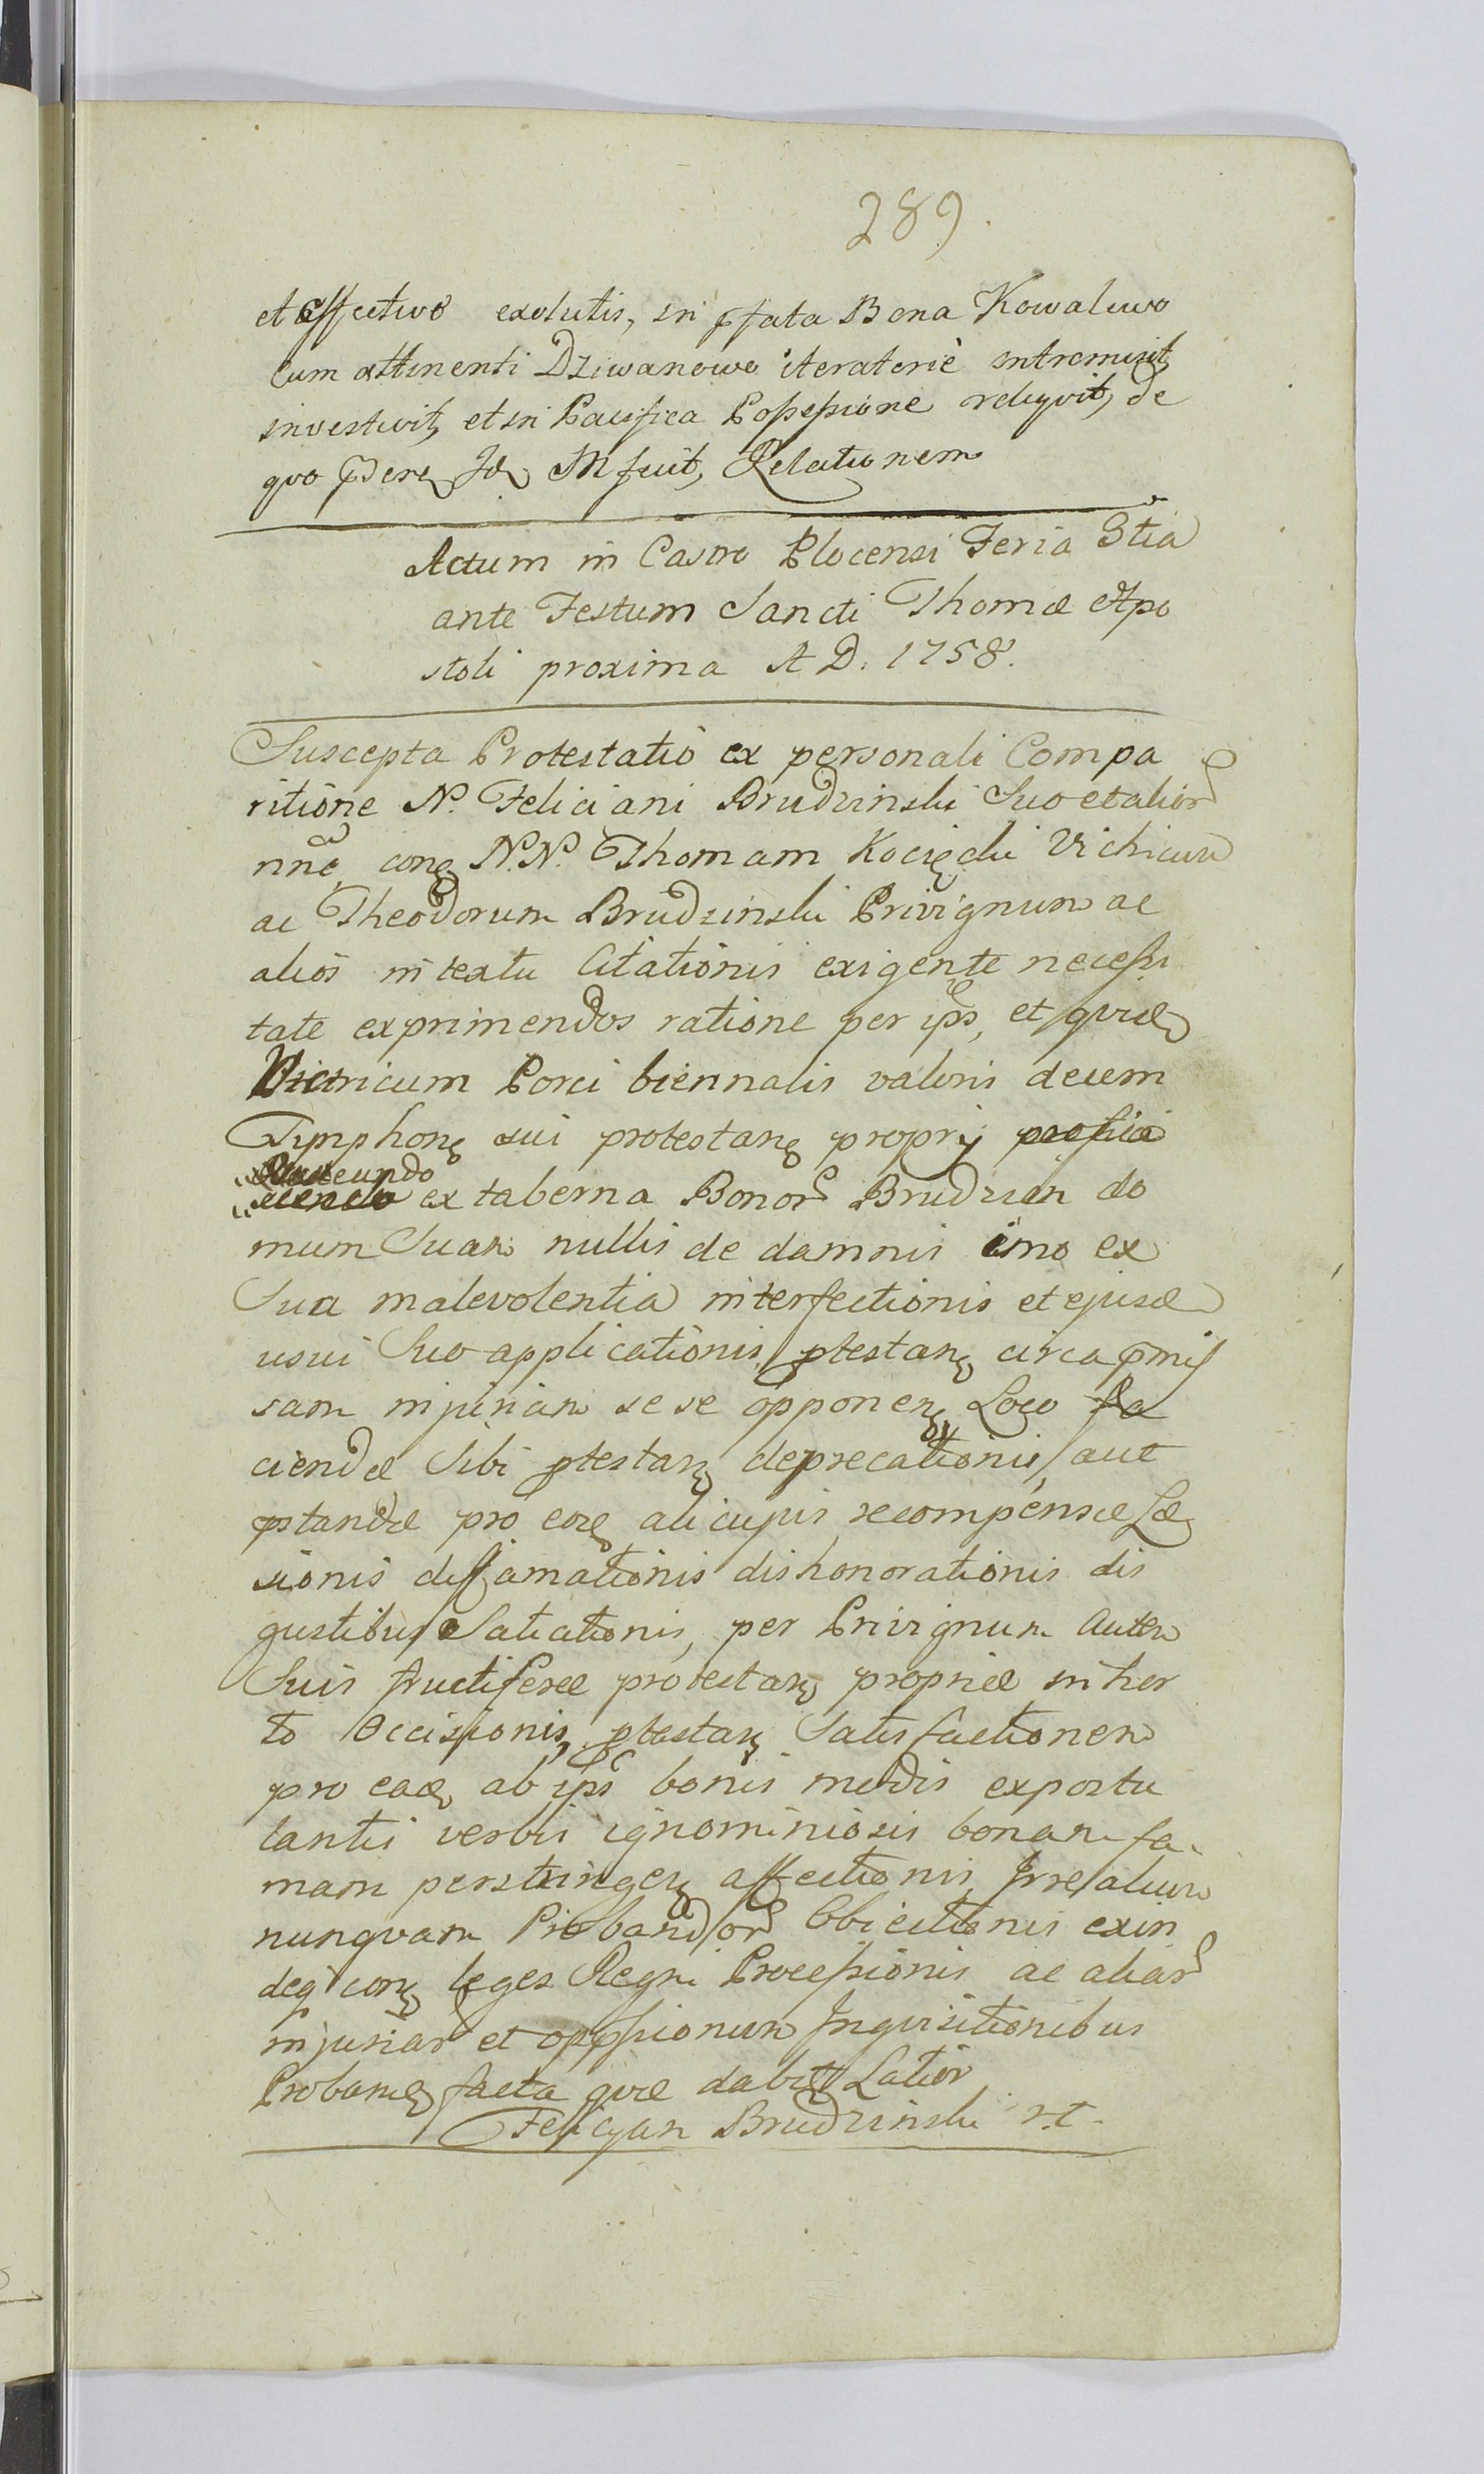 289.
et effective exolutis, in pfata Bona Kowalewo
Cum attinenti Dziwanowo iteratorie intromisit,
investivit, et in Pacifica Possessione reliqvit, de
qvo Id M fecit, Relationem
Actum in Castro Plocensi Feria 3tia
ante Festum Sancti Thomæ Apo
stoli proxima A D. 1758.
Suscepta Protestatio ex personali Compa
ritione N. Feliciani Brudzinski Suo et alior
nñe, con N.N. Thomam Kocięcki Vitricum
ac Theodorum Brudzinski Privignum ac
alios in textu Citationis exigente necessi
tate exprimendos ratione per ips, et qvid
Victricum Porci biennalis valoris decem
Tymphon sui protestan proprij
eundo
ex taberna Bonor Brudzen do
mum Suam nullis de damnis imo ex
Sua malevolentia interfectionis et ejusd
usui Suo applicationis, ptestan circa pmis
sam injuriam se se opponen Loco fa
ciendæ Sibi ptestan deprecationis, aut
pstandæ pro eod alicujus recompensæ Læ
sionis diffamationis dishonorationis dis
gustibus Satiationis, per Privignum Autem
Suis fructiferæ protestan propriæ in hor
to Occisionis, ptestan Satisfactionem
pro ead, ab ips bonis modis expostu
lantis verbis ignominiosis bonam fa
mam perstringen affectionis,
nunqvam Probandor Obiectionis exin
deq con leges Regni Processionis ac aliar
injuriar et oppssionum Inqvisitionibus
Proband facta qvæ dabit Latior
Felicyan Brudzinski